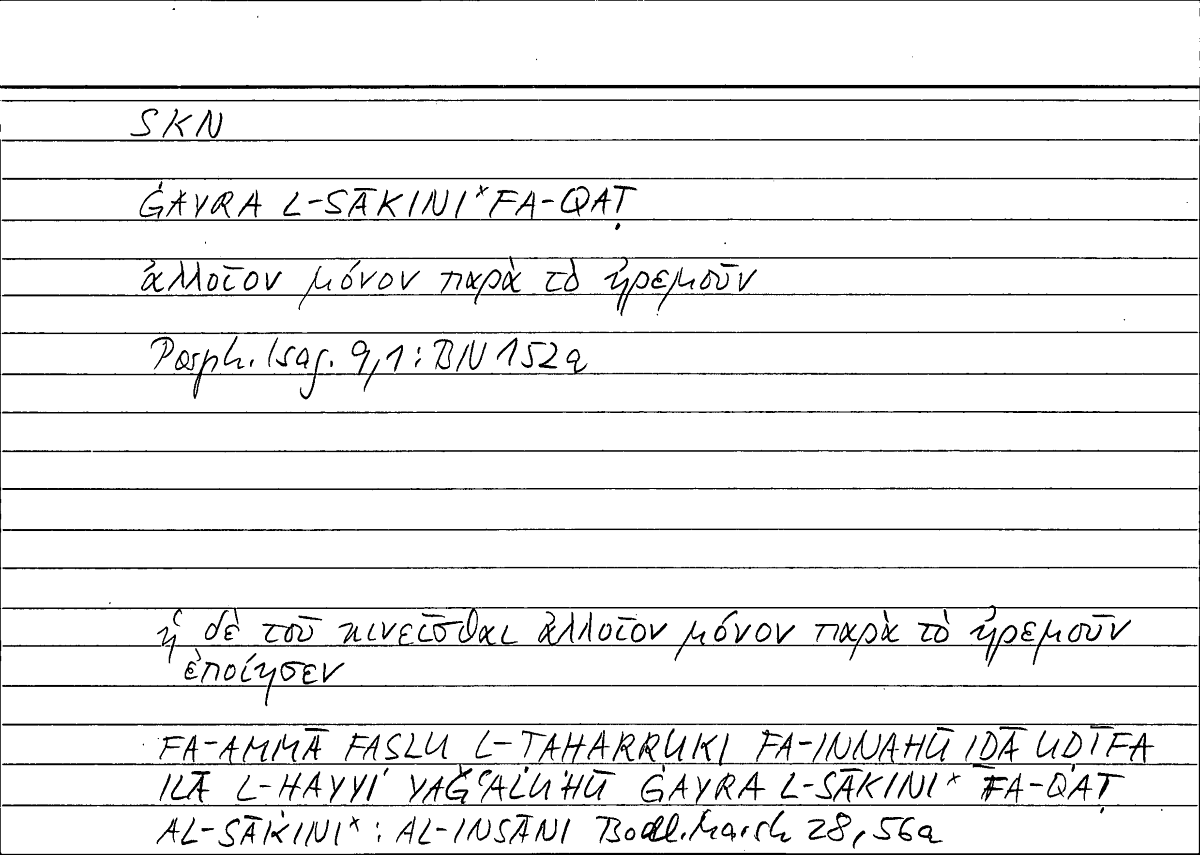 SKN
ĠAYRA L-SĀKINI* FA-QAṬ
ἀλλοῖον μόνον παρὰ τὸ ἠρεμοῦν
Porph. Isag. 9,1: BN 152a
ἡ δὲ τοῦ κινεῖσθαι ἀλλοῖον μόνον παρὰ τὸ ἠρεμοῦν
ἐποίησεν
FA-AMMĀ FAṢLU L-TAḤARRUKI FA-INNAHŪ IḎĀ UḌĪFA
ILĀ L-ḤAYYI YAǦʿALUHŪ ĠAYRA L-SĀKINI* FA-QAṬ
AL-SĀKINI*: AL-INSĀNI Bodl. Marsh 28, 56a